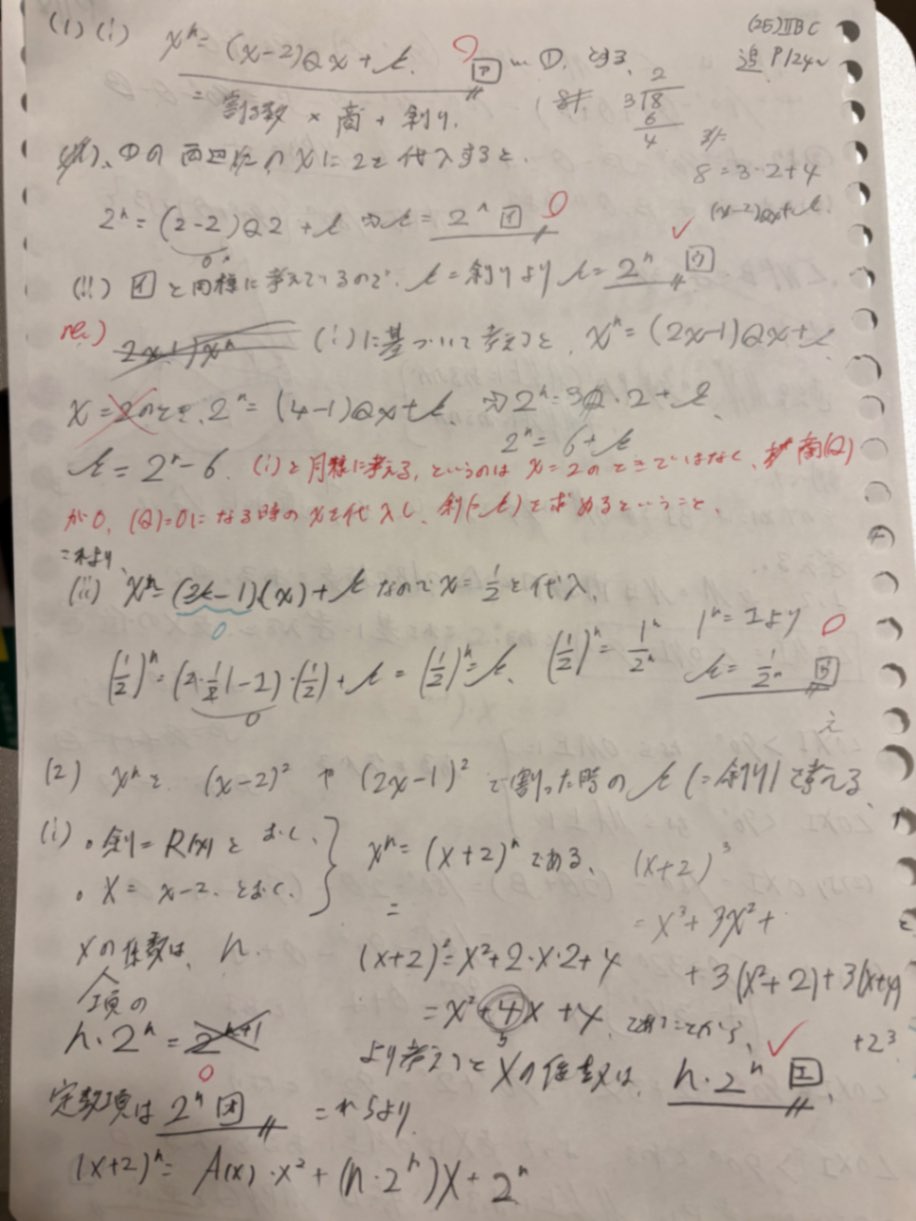 (25)ⅡBC
追 P124~
(1)(i) xⁿ = (x-2)Qx + r ア … ①. とする、
= 割る数 × 商 + 剰り.
8÷ 3)8 2 6 4
8 = 3・2+4
(x-2)Qx+r
①の両辺のxに2を代入すると、
2ⁿ = (2-2)Q2 + r r = 2ⁿ イ
0
(ii) イと同様に考えているので、r = 剰りより r = 2ⁿ ウ
re.) 2x-1)xⁿ (i)に基づいて考えると、xⁿ = (2x-1)Qx + r
x = 2のとき、2ⁿ = (4-1)Qx + r 2ⁿ = 3Q・2 + r
2ⁿ = 6 + r
r = 2ⁿ - 6. (i)と同様に考える, というのは x=2のときではなく、商(Q)
が0, (Q)=0になる時のxを代入し、剰(=r)を求めるということ、
これより、
(ii) xⁿ = (2x-1)(x) + r なので x = 1/2 を代入、
0
(1/2)ⁿ = (2・1/2-1)・(1/2) + r = (1/2)ⁿ = r. (1/2)ⁿ = 1ⁿ/2ⁿ 1ⁿ = 1より
0
r = 1/2ⁿ ウ
(2) xⁿを (x-2)² や (2x-1)² で割った時の r (=剰り)を考える
(i) 。剰 = R(x) とおく、
。X = x-2. とおく、
xⁿ = (X+2)ⁿ である、
=
(x+2)³
= x³ + 3x² +
+ 3(x²+2) + 3(x+4)
+2³
Xの係数は、n.
項の
n・2ⁿ = 2ⁿ⁺¹
(x+2)² = x²+2・x・2+4
= x²+4x+4. であることから、
より考えるとXの係数は、n・2ⁿ エ.
定数項は 2ⁿ オ これらより
(x+2)ⁿ = A(x)・x² + (n・2ⁿ)X + 2ⁿ